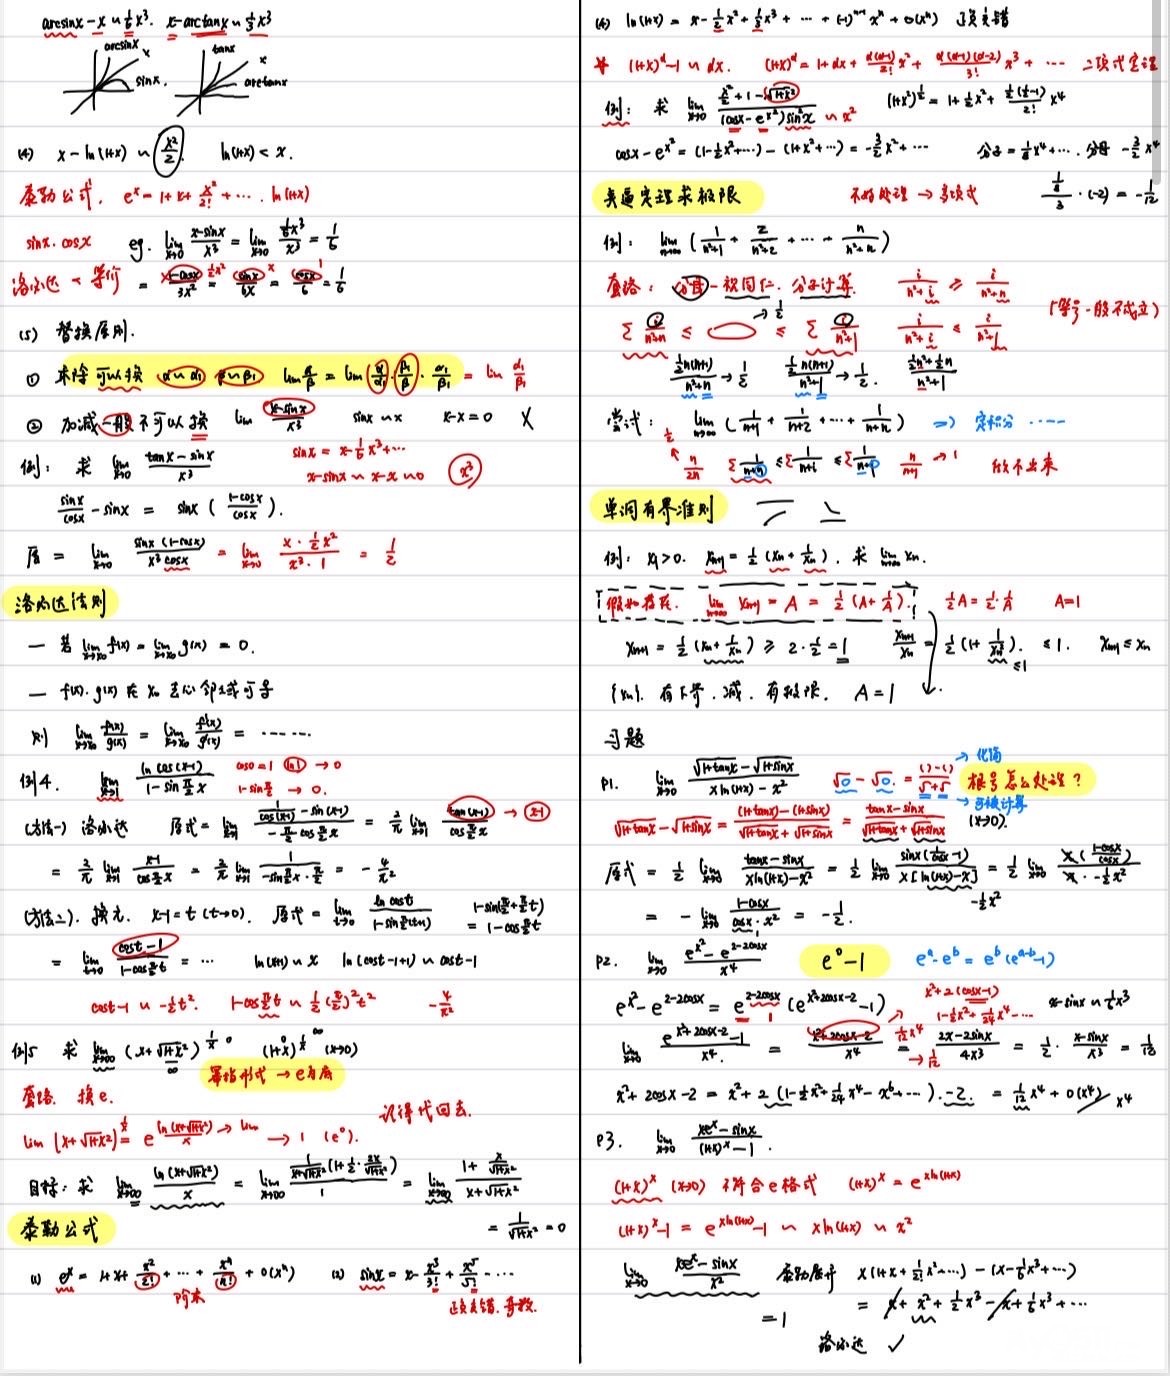 arcsinx - x ~ 1/6 x³. x - arctanx ~ 1/3 x³
arcsinx x sinx. tanx x arctanx
(4) x - ln(1+x) ~ x²/2. ln(1+x) < x.
泰勒公式. e^x = 1 + x + x²/2! + ⋯. ln(1+x)
sinx. cosx eg. lim_{x→0} (x-sinx)/x³ = lim_{x→0} (1/6 x³)/x³ = 1/6
洛必达 < 等价 = (1-cosx)/3x² = sinx/6x = cosx/6 = 1/6
(5) 替换原则.
① 乘除可以换 α~α₁ β~β₁ lim α/β = lim (α/α₁ · β₁/β · α₁/β₁) = lim α₁/β₁
② 加减一般不可以换 lim (x-sinx)/x³ sinx ~ x x-x=0 ✗
例: 求 lim_{x→0} (tanx - sinx)/x³ sinx = x - 1/6 x³ + ⋯
x-sinx ~ x-x ~ 0 x³
sinx/cosx - sinx = sinx ((1-cosx)/cosx).
原 = lim_{x→0} sinx(1-cosx)/(x³cosx) = lim_{x→0} (x · 1/2 x²)/(x³ · 1) = 1/2
洛必达法则
一 若 lim_{x→x₀} f(x) = lim_{x→x₀} g(x) = 0.
一 f(x). g(x) 在 x₀ 去心邻域可导
则 lim_{x→x₀} f(x)/g(x) = lim_{x→x₀} f'(x)/g'(x) = ⋯⋯
例4. lim_{x→1} ln cos(x-1)/(1 - sin π/2 x) cos0 = 1 ln1 → 0
1 - sin π/2 → 0.
(方法一) 洛必达 原式 = lim_{x→1} (1/cos(x-1) · -sin(x-1))/(-π/2 cos π/2 x) = 2/π lim_{x→1} tan(x-1)/(cos π/2 x) → x-1
= 2/π lim_{x→1} (x-1)/(cos π/2 x) = 2/π lim_{x→1} 1/(-sin π/2 x · π/2) = - 4/π²
(方法二). 换元. x-1=t (t→0). 原式 = lim_{t→0} ln cost/(1 - sin π/2 (t+1)) 1 - sin(π/2 + π/2 t) = 1 - cos π/2 t
= lim_{t→0} (cost-1)/(1 - cos π/2 t) = ⋯ ln(x+1) ~ x ln(cost-1+1) ~ cost-1
cost-1 ~ -1/2 t². 1 - cos π/2 t ~ 1/2 (π/2)² t² - 4/π²
例5 求 lim_{x→∞} (x+√(1+x²))^{1/x} (1+x)^{1/x} (x→0)
幂指形式 → e为底
套路. 换e. 记得代回去.
lim (x+√(1+x²))^{1/x} = e^{ln(x+√(1+x²))/x} → lim → 1 (e⁰).
目标: 求 lim_{x→∞} ln(x+√(1+x²))/x = lim_{x→∞} (1/(x+√(1+x²)) (1 + 1/2 · 2x/√(1+x²)))/1 = lim_{x→∞} (1 + x/√(1+x²))/(x+√(1+x²))
= 1/√(1+x²) = 0
泰勒公式
(1) e^x = 1 + x + x²/2! + ⋯ + xⁿ/n! + o(xⁿ) (2) sinx = x - x³/3! + x⁵/5! - ⋯
阶乘 正负交错. 奇数.
(6) ln(1+x) = x - 1/2 x² + 1/3 x³ + ⋯ + (-1)^{n-1} xⁿ + o(xⁿ) 正负交错
* (1+x)^α - 1 ~ αx. (1+x)^α = 1 + αx + α(α-1)/2! x² + α(α-1)(α-2)/3! x³ + ⋯ 二项式定理
例: 求 lim_{x→0} (x²/2 + 1 - √(1+x²))/((cosx - e^{x²}) sin²x) ~ x² (1+x²)^{1/2} = 1 + 1/2 x² + 1/2(1/2-1)/2! x⁴
cosx - e^{x²} = (1 - 1/2 x² + ⋯) - (1 + x² + ⋯) = -3/2 x² + ⋯ 分子 = 1/8 x⁴ + ⋯. 分母 -3/2 x⁴
夹逼定理求极限 不好处理 → 多项式 1/8/3 · (-2) = -1/12
例: lim_{n→∞} (1/(n²+1) + 2/(n²+2) + ⋯ + n/(n²+n))
套路: 分母一视同仁. 分子计算. i/(n²+i) ≥ i/(n²+n)
(等号一般不成立)
Σ i/(n²+n) ≤ ≤ Σ i/(n²+1) → 1/2 i/(n²+i) ≤ i/(n²+1)
1/2 n(n+1)/(n²+n) → 1/2 1/2 n(n+1)/(n²+1) → 1/2. (1/2 n² + 1/2 n)/(n²+1)
尝试: lim_{n→∞} (1/(n+1) + 1/(n+2) + ⋯ + 1/(n+n)) ⇒ 定积分 ⋯⋯
1/2 ← n/2n Σ 1/(n+n) ≤ Σ 1/(n+i) ≤ Σ 1/(n+1) n/(n+1) → 1 做不出来
单调有界准则
例: x₁>0. x_{n+1} = 1/2 (x_n + 1/x_n). 求 lim_{n→∞} x_n.
假如存在. lim_{n→∞} x_{n+1} = A = 1/2 (A + 1/A). 1/2 A = 1/2 · 1/A A=1
x_{n+1} = 1/2 (x_n + 1/x_n) ≥ 2 · 1/2 = 1 x_{n+1}/x_n = 1/2 (1 + 1/x_n²). ≤ 1. x_{n+1} ≤ x_n
≤1
{x_n}. 有下界. 减. 有极限. A = 1
习题
P1. lim_{x→0} (√(1+tanx) - √(1+sinx))/(x ln(1+x) - x²) √0 - √0. = (( )-( ))/(√+√) → 化简 根号怎么处理?
→ 可被计算 (x→0).
√(1+tanx) - √(1+sinx) = ((1+tanx)-(1+sinx))/(√(1+tanx) + √(1+sinx)) = (tanx - sinx)/(√(1+tanx) + √(1+sinx))
原式 = 1/2 lim_{x→0} (tanx - sinx)/(x ln(1+x) - x²) = 1/2 lim_{x→0} sinx(1/cosx - 1)/(x[ln(1+x)-x]) = 1/2 lim_{x→0} x((1-cosx)/cosx)/(x · -1/2 x²)
-1/2 x²
= - lim_{x→0} (1-cosx)/(cosx · x²) = -1/2.
P2. lim_{x→0} (e^{x²} - e^{2-2cosx})/x⁴ e⁰-1 e^a - e^b = e^b (e^{a-b} - 1)
e^{x²} - e^{2-2cosx} = e^{2-2cosx} (e^{x²+2cosx-2} - 1) x² + 2(cosx-1) x-sinx ~ 1/6 x³
1 - 1/2 x² + 1/24 x⁴ - ⋯
lim_{x→0} (e^{x²+2cosx-2} - 1)/x⁴. = (x²+2cosx-2)/x⁴ 1/12 x⁴ → 1/12 = (2x-2sinx)/4x³ = 1/2 · (x-sinx)/x³ = 1/12
x² + 2cosx - 2 = x² + 2(1 - 1/2 x² + 1/24 x⁴ - x⁶ + ⋯) - 2. = 1/12 x⁴ + o(x⁴) x⁴
P3. lim_{x→0} (xe^x - sinx)/((1+x)^x - 1).
(1+x)^x (x→0) 不符合e格式 (1+x)^x = e^{x ln(1+x)}
(1+x)^x - 1 = e^{x ln(1+x)} - 1 ~ x ln(1+x) ~ x²
lim_{x→0} (xe^x - sinx)/x² 泰勒展开 x(1 + x + 1/2! x² + ⋯) - (x - 1/6 x³ + ⋯)
= 1 = x + x² + 1/2 x³ - x + 1/6 x³ + ⋯
洛必达 ✓